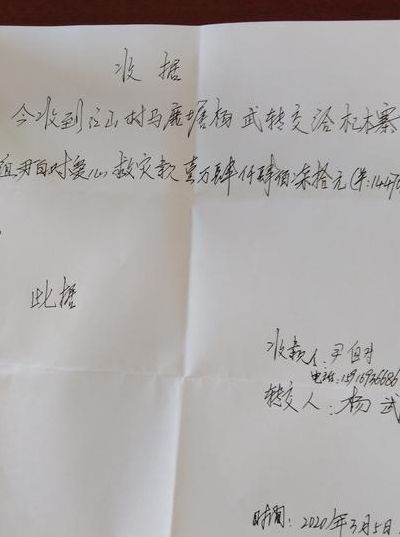 收据
今收到江山村马鹿塘杨武转交给木寨
组尹自对爱心救灾款壹万肆仟肆佰柒拾元(¥:1447
此据
收款人:尹自对
电话:
转交人:杨武
时间:2020年3月5日